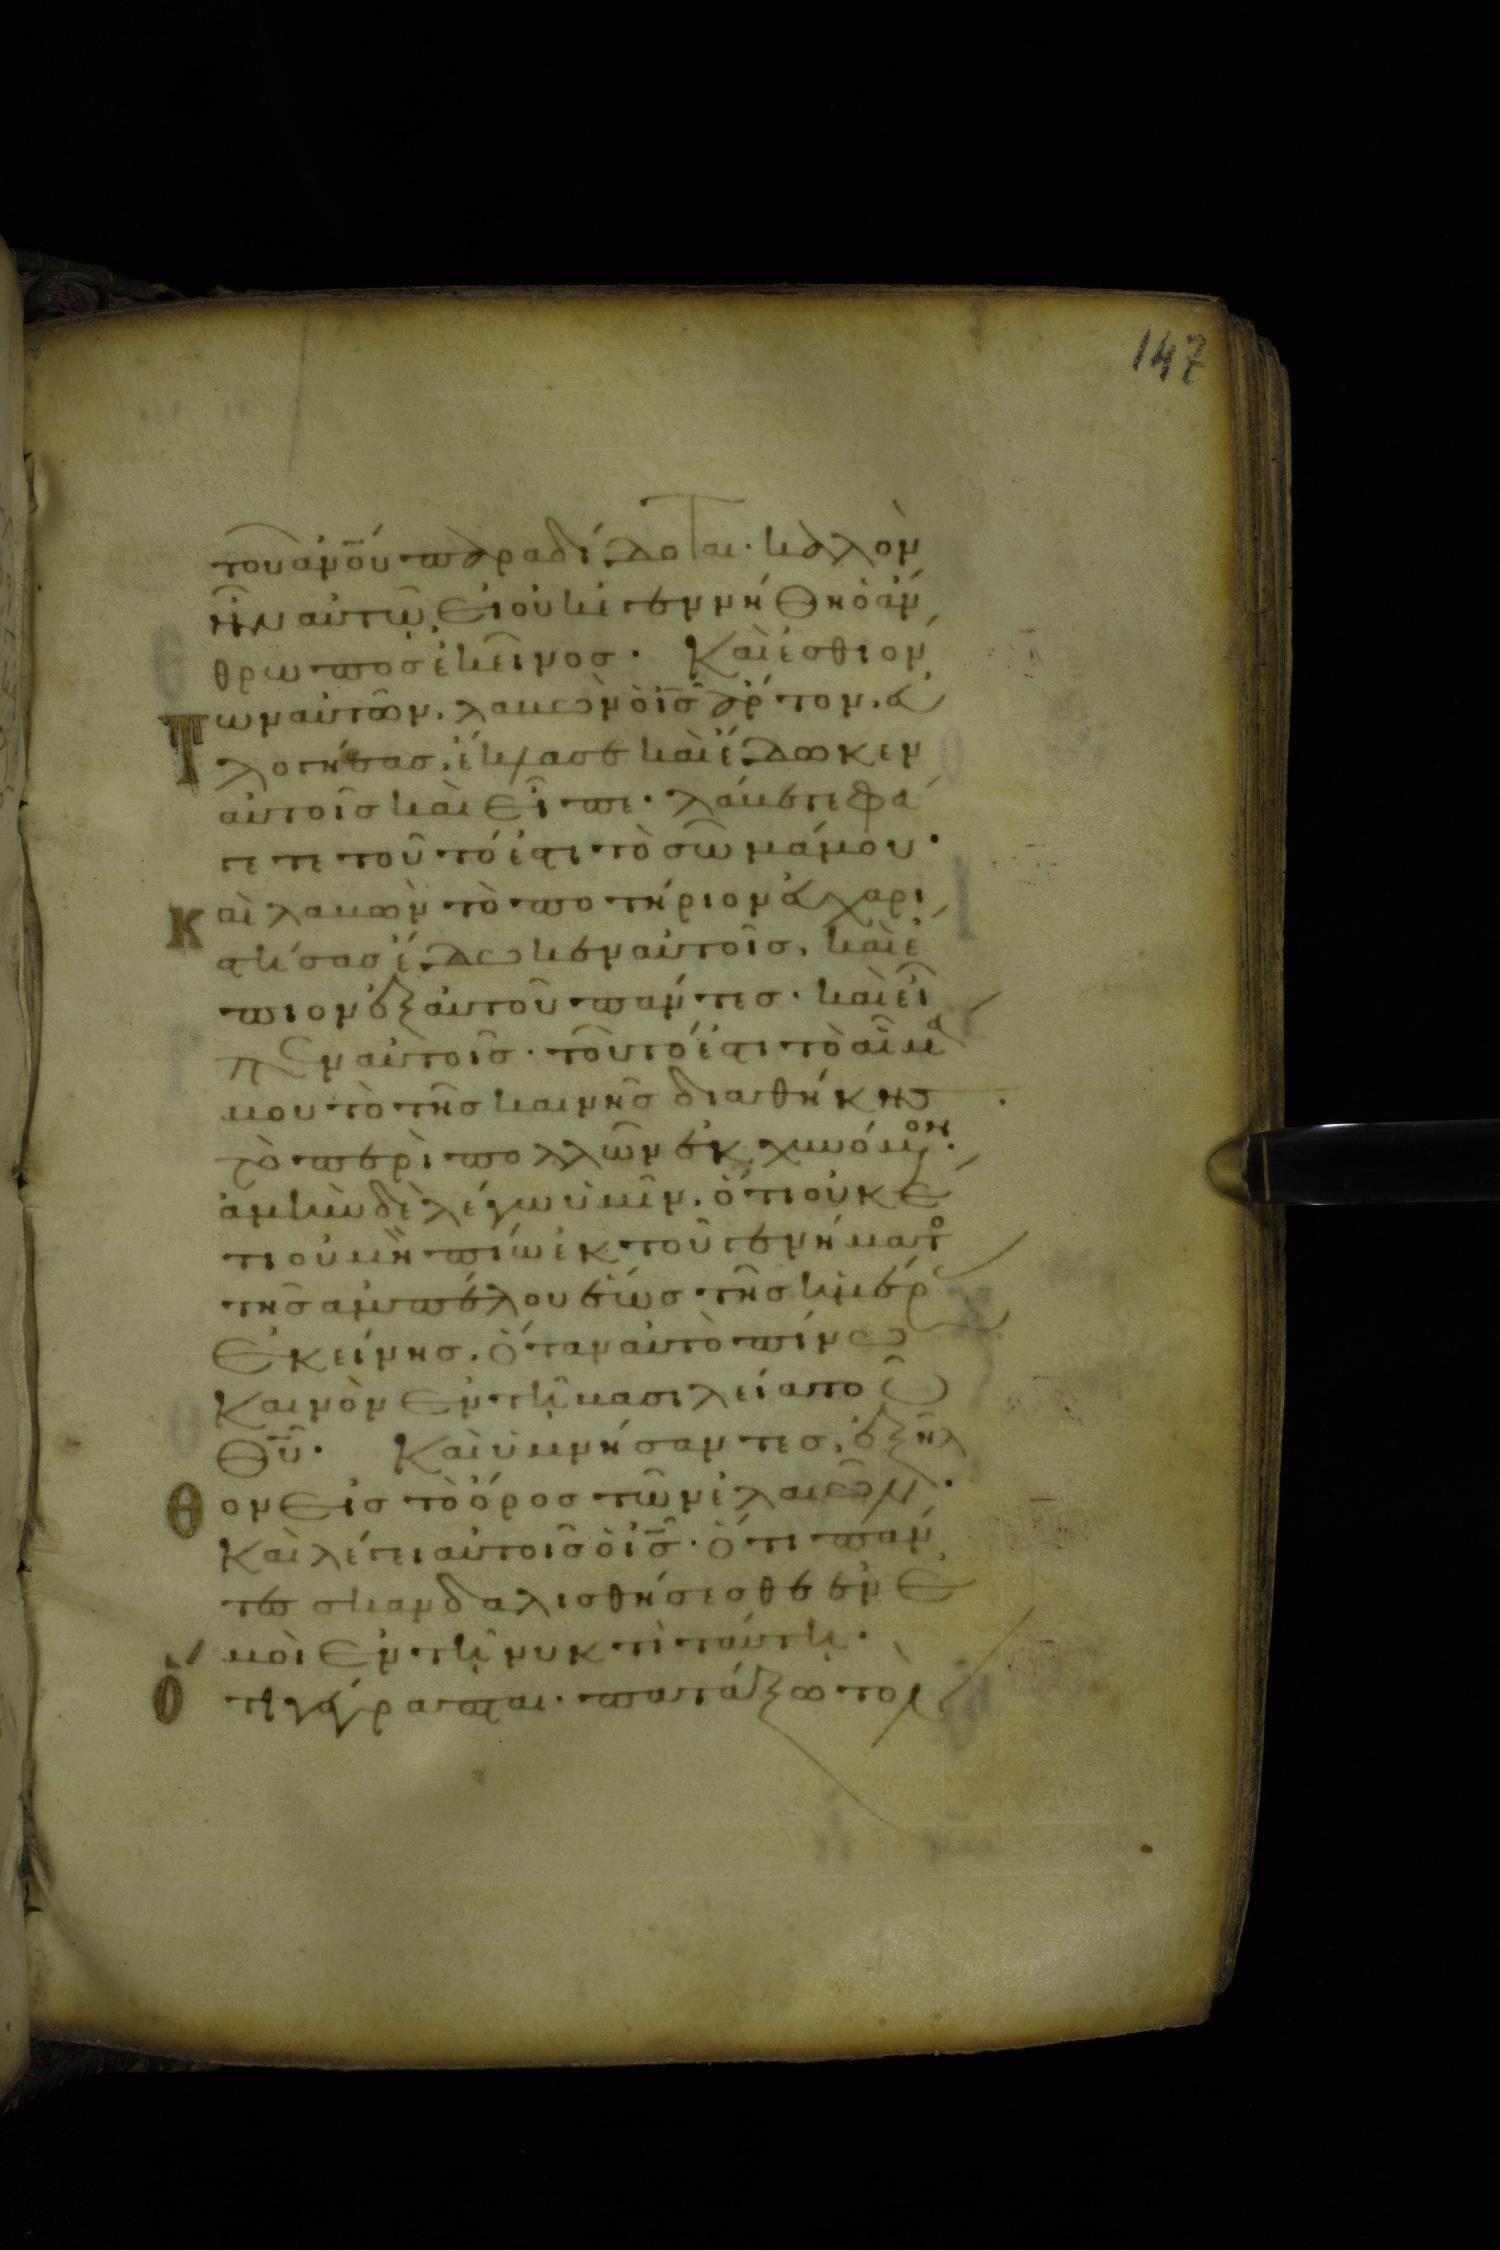 147
του ἀνου παραδίδοται· καλὸν
ἦν αὐτῶ, εἰ οὐκ ἐγεννήθη ὁ ἄν
θρωπος ἐκεῖνος· Καὶ ἐσθιόν
Των αὐτῶν, λαβὼν ὁ ις ἄρτον, εὐ
λογήσας, ἔκλασε καὶ ἔδωκεν
αὐτοῖς καὶ εἶπε· λάβετε φά
γετε τοῦτό ἐστι τὸ σῶμά μου·
Καὶ λαβὼν τὸ ποτήριον εὐχαρι
στήσας ἔδωκεν αὐτοῖς, καὶ ἔ
πιον ἐξ αὐτοῦ πάντες· καὶ εἶ
πεν αὐτοῖς· τοῦτό ἐστι τὸ αἷμα
μου τὸ τῆς καινῆς διαθήκης
τὸ περὶ πολλῶν ἐκχυνόμενον·
ἀμὴν δὲ λέγω ὑμῖν, ὅτι οὐκέ
τι οὐ μὴ πίω ἐκ τοῦ γενήματο
τῆς ἀμπέλου ἕως τῆς ἡμέρ
ἐκείνης, ὅταν αὐτὸ πίνω
καινὸν ἐν τῆ βασιλεία το͂υ
θυ· Καὶ ὑμνήσαντες, ἐξῆλ
Θον εἰς τὸ ὄρος τῶν ἐλαιῶν·
καὶ λέγει αὐτοῖς ὁ ις· ὅτι πάν
τες σκανδαλισθήσεσθε ἐν ἐ
μοὶ ἐν τῆ νυκτὶ ταύτη·
Ὅτι γέγραπται· πατάξω τὸν